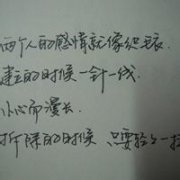 两个人的感情就像织衣
建立的时候一针一线
小心而漫长
拆除的时候 只要轻轻一拉